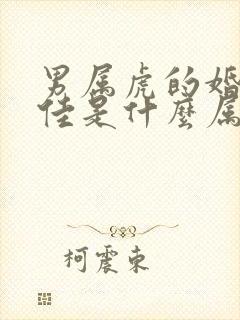 男属虎的婚
佳是什麼属
柯震東